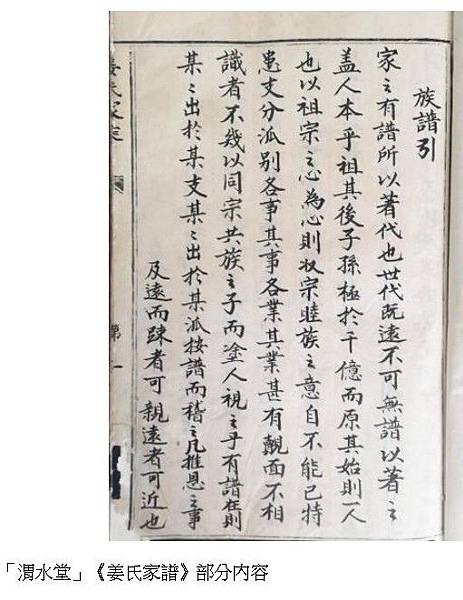 族譜引
家之有譜所以著代也世代既遠不可無譜以著之
盖人本乎祖其後子孫極於千億而原其始則一人
也以祖宗之心為心則収宗睦族之意自不能已特
患支分泒別各事其事各業其業甚有覿面不相
識者不幾以同宗共族之子而塗人視之乎有譜在則
某〻出於某支某〻出於某泒按譜而稽之凡推恩之事
及遠而踈者可親遠者可近也
姜氏家
第一
「渭水堂」《姜氏家譜》部分內容